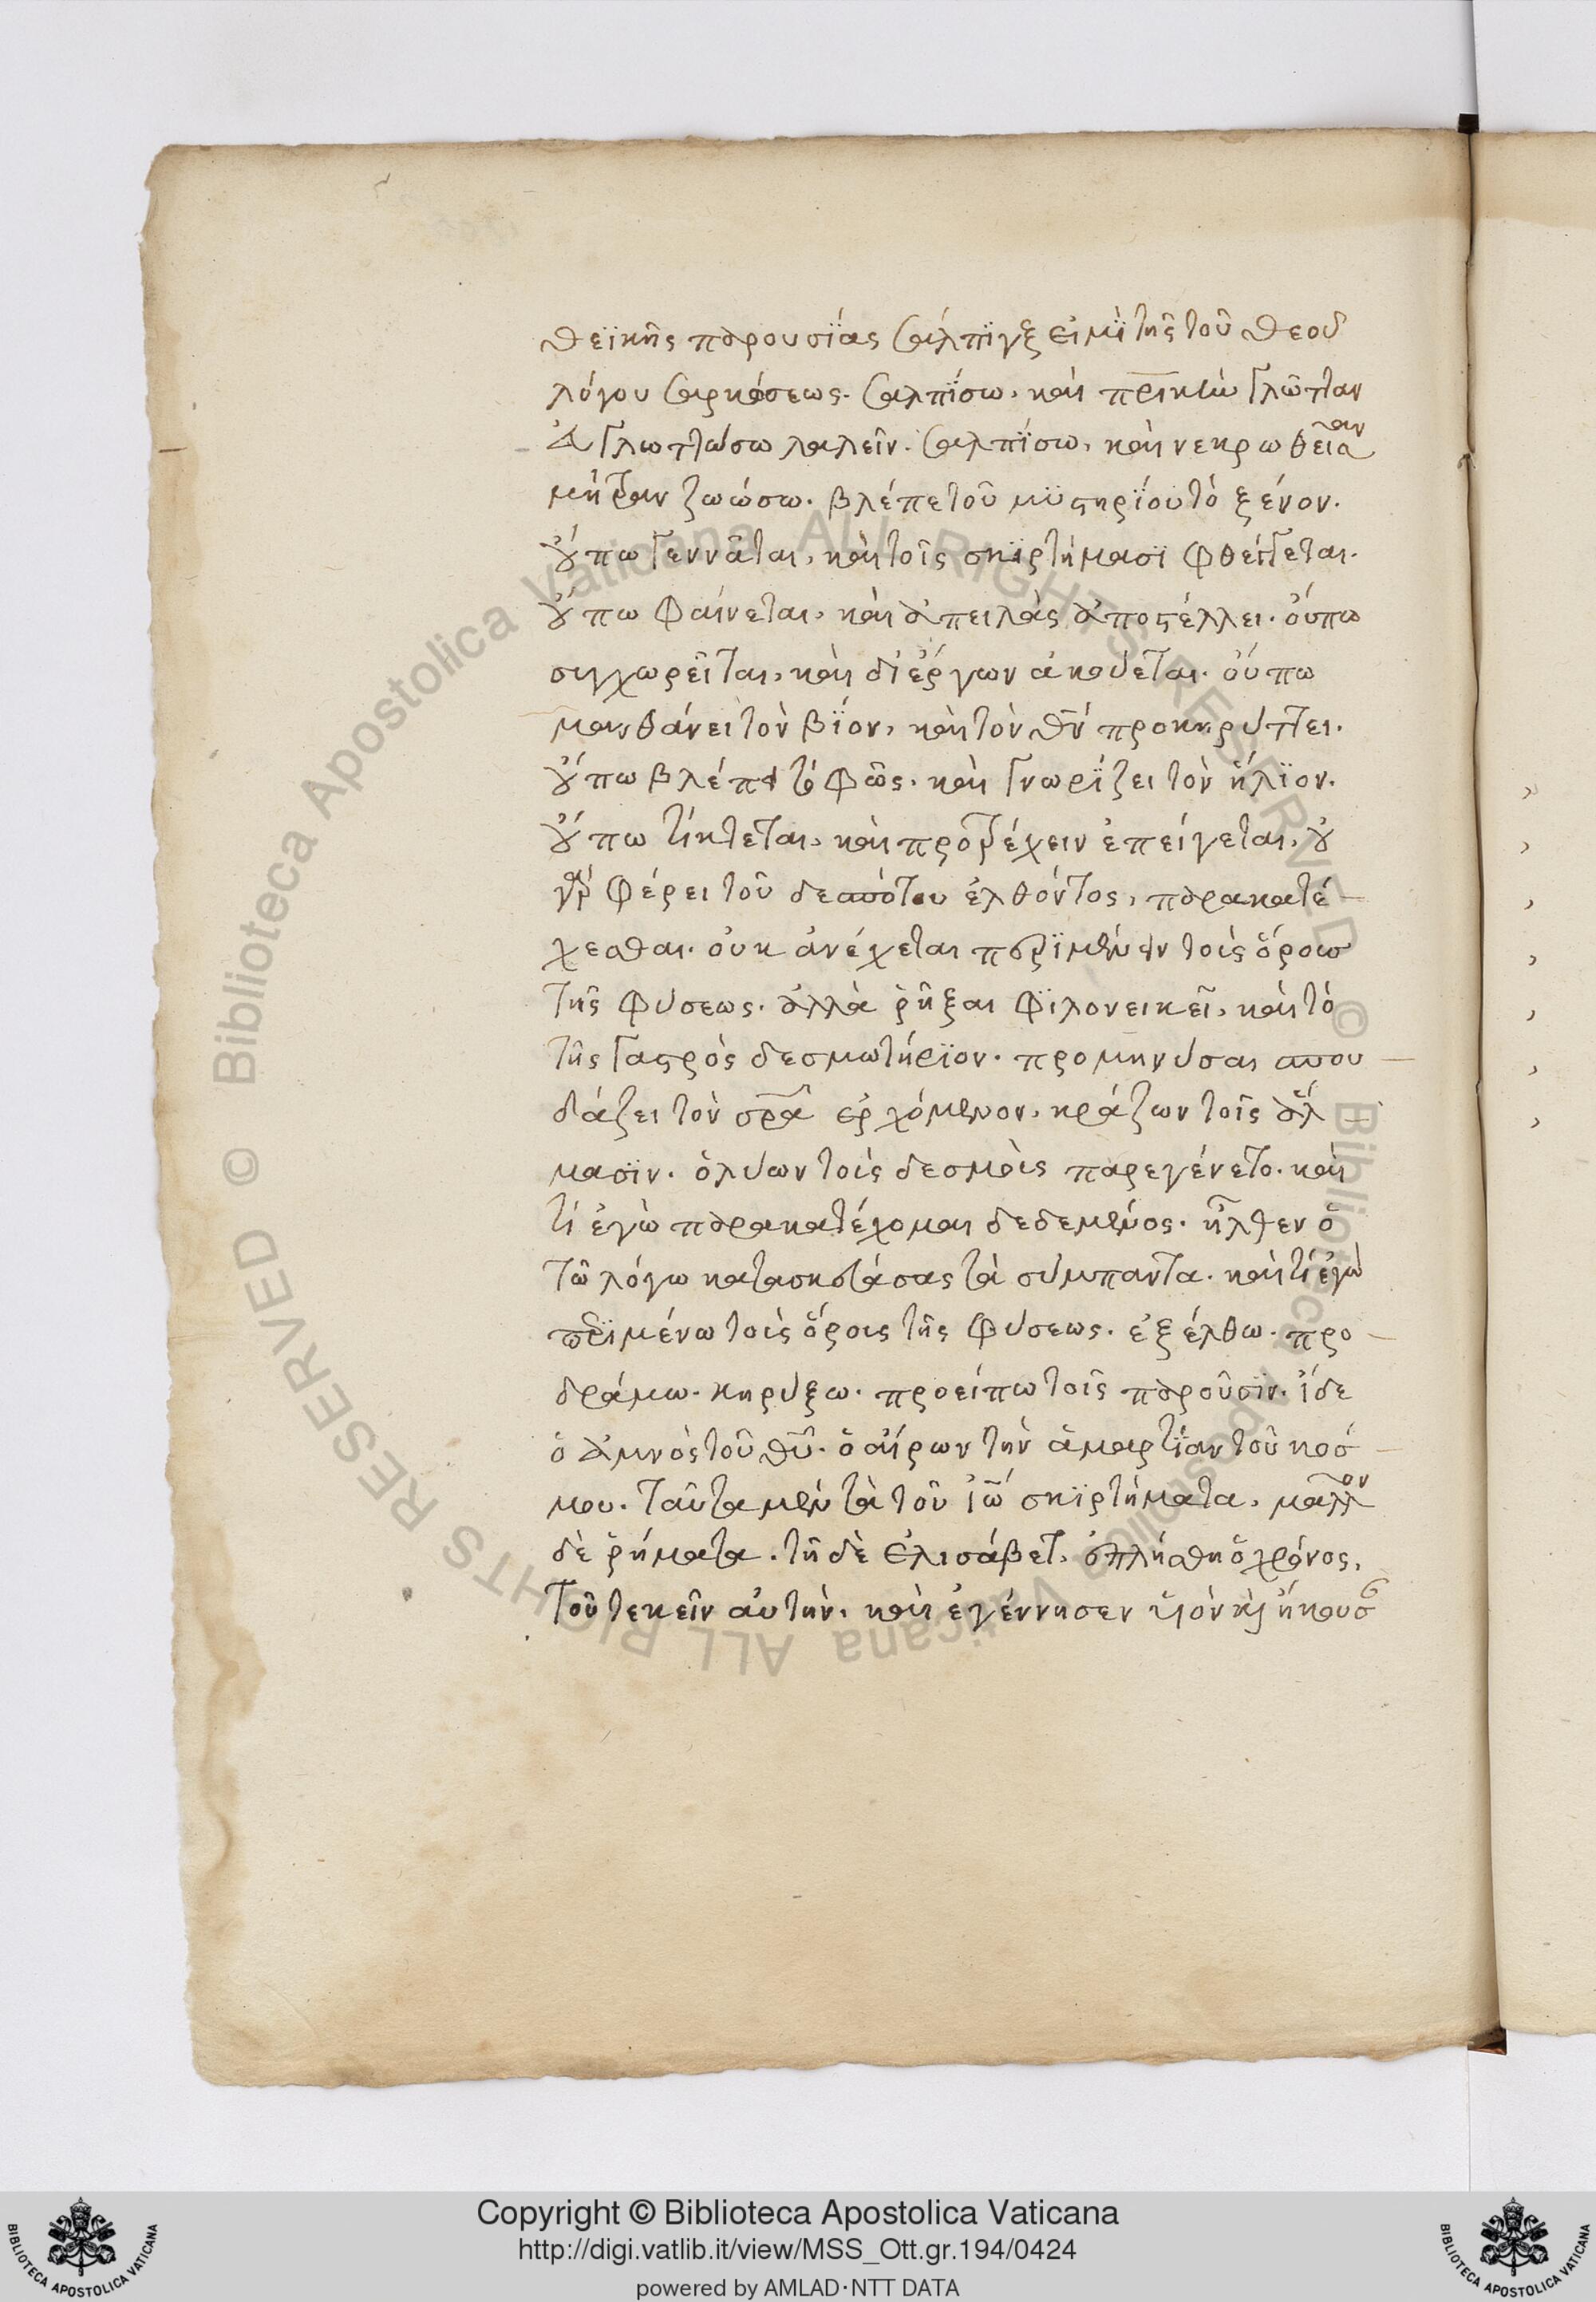 θεϊκῆς παρουσΐας σάλπϊγξ εἰμϊ τῆς τοῦ θεοῦ
λόγου σαρκώσεως. σαλπΐσω, καὶ πρικὴν γλῶτταν
εὐγλωττήσω λαλεῖν. σαλπΐσω, καὶ νεκρωθεῖσαν
μήτραν ζωώσω. βλέπε τοῦ μϋστηρΐου τὸ ξένον.
οὔπω γεννᾶται, καὶ τοῖς σκϊρτήμασϊ φθέγγεται.
οὔπω φαίνεται, καὶ ἀπειλὰς ἀποστέλλει. οὔπω
συγχωρεῖται, καὶ δι ἔργων ἀκούεται. οὔπω
μανθάνει τὸν βΐον, καὶ τὸν θν προκηρύττει.
οὔπω βλέπει τὸ φῶς. καὶ γνωρΐζει τὸν ἥλϊον.
οὔπω τίκτεται, καὶ προτρέχειν ἐπείγεται, οὐ
γὰρ φέρει τοῦ δεσπότου ἐλθόντος, παρακατέ
χεσθαι. οὐκ ἀνέχεται περϊμένειν τοὺς ὅρους
τῆς φύσεως. ἀλλὰ ῥῆξαι φϊλονεικεῖ, καὶ τὸ
τῆς γαστρὸς δεσμωτήρϊον. προμηνύσαι σπου
δάζει τὸν σρα ἐρχόμενον, κράζων τοῖς ἅλ
μασϊν. ὁ λύων τοὺς δεσμοὺς παρεγένετο. καὶ
τί ἐγὼ παρακατέχομαι δεδεμένος. ἦλθεν ὁ
τῶ λόγω κατασκευάσας τὰ σύμπαντα. καὶ τί ἐγὼ
περϊμένω τοὺς ὅρους τῆς φύσεως. ἐξέλθω. προ
δράμω. κηρύξω. προείπω τοῖς παροῦσϊν. ἴδε
ὁ ἀμνὸς τοῦ θυ. ὁ αἴρων τὴν ἁμαρτΐαν τοῦ κόσ
μου. ταῦτα μὲν τὰ τοῦ ἰω σκϊρτήματα, μᾶλλον
δὲ ῥήματα. τῆ δὲ ἐλισάβετ, ἐπλήσθη ὁ χρόνος,
τοῦ τεκεῖν αὐτὴν. καὶ ἐγέννησεν υἱὸν καὶ ἤκουσ
Copyright © Biblioteca Apostolica Vaticana
http://digi.vatlib.it/view/MSS_Ott.gr.194/0424
powered by AMLAD·NTT DATA